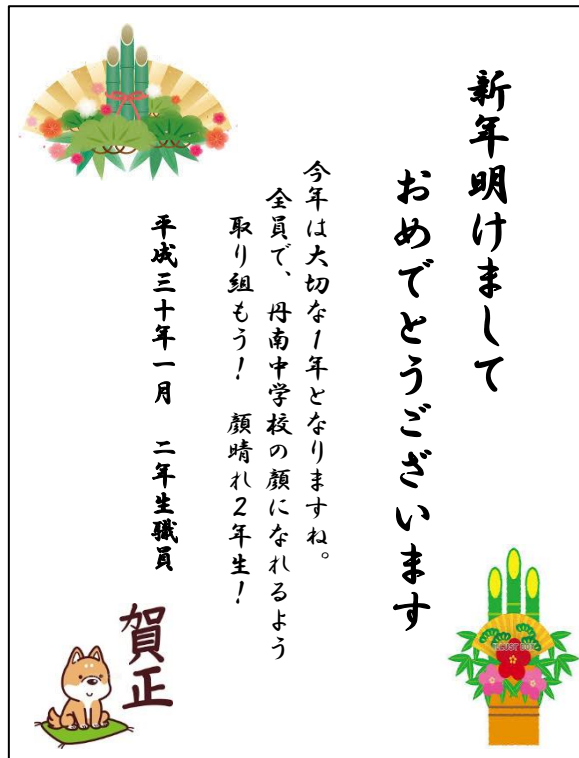 新年明けまして
おめでとうございます
今年は大切な1年となりますね。
全員で、丹南中学校の顔になれるよう
取り組もう！　顔晴れ2年生！
平成三十年一月　二年生職員
賀正